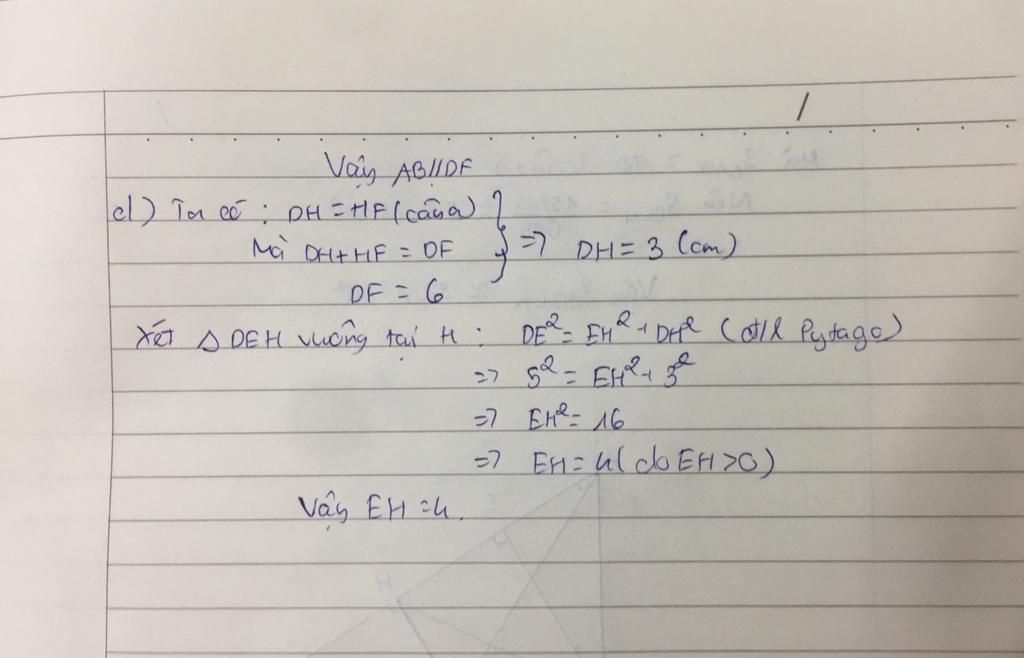 Vậy AB//DF
d) Ta có : DH = HF (câu a)
Mà DH + HF = DF } => DH = 3 (cm)
DF = 6
Xét △ DEH vuông tại H : DE² = EH² + DH² (đ/l Pytago)
=> 5² = EH² + 3²
=> EH² = 16
=> EH = 4 (do EH > 0)
Vậy EH = 4.